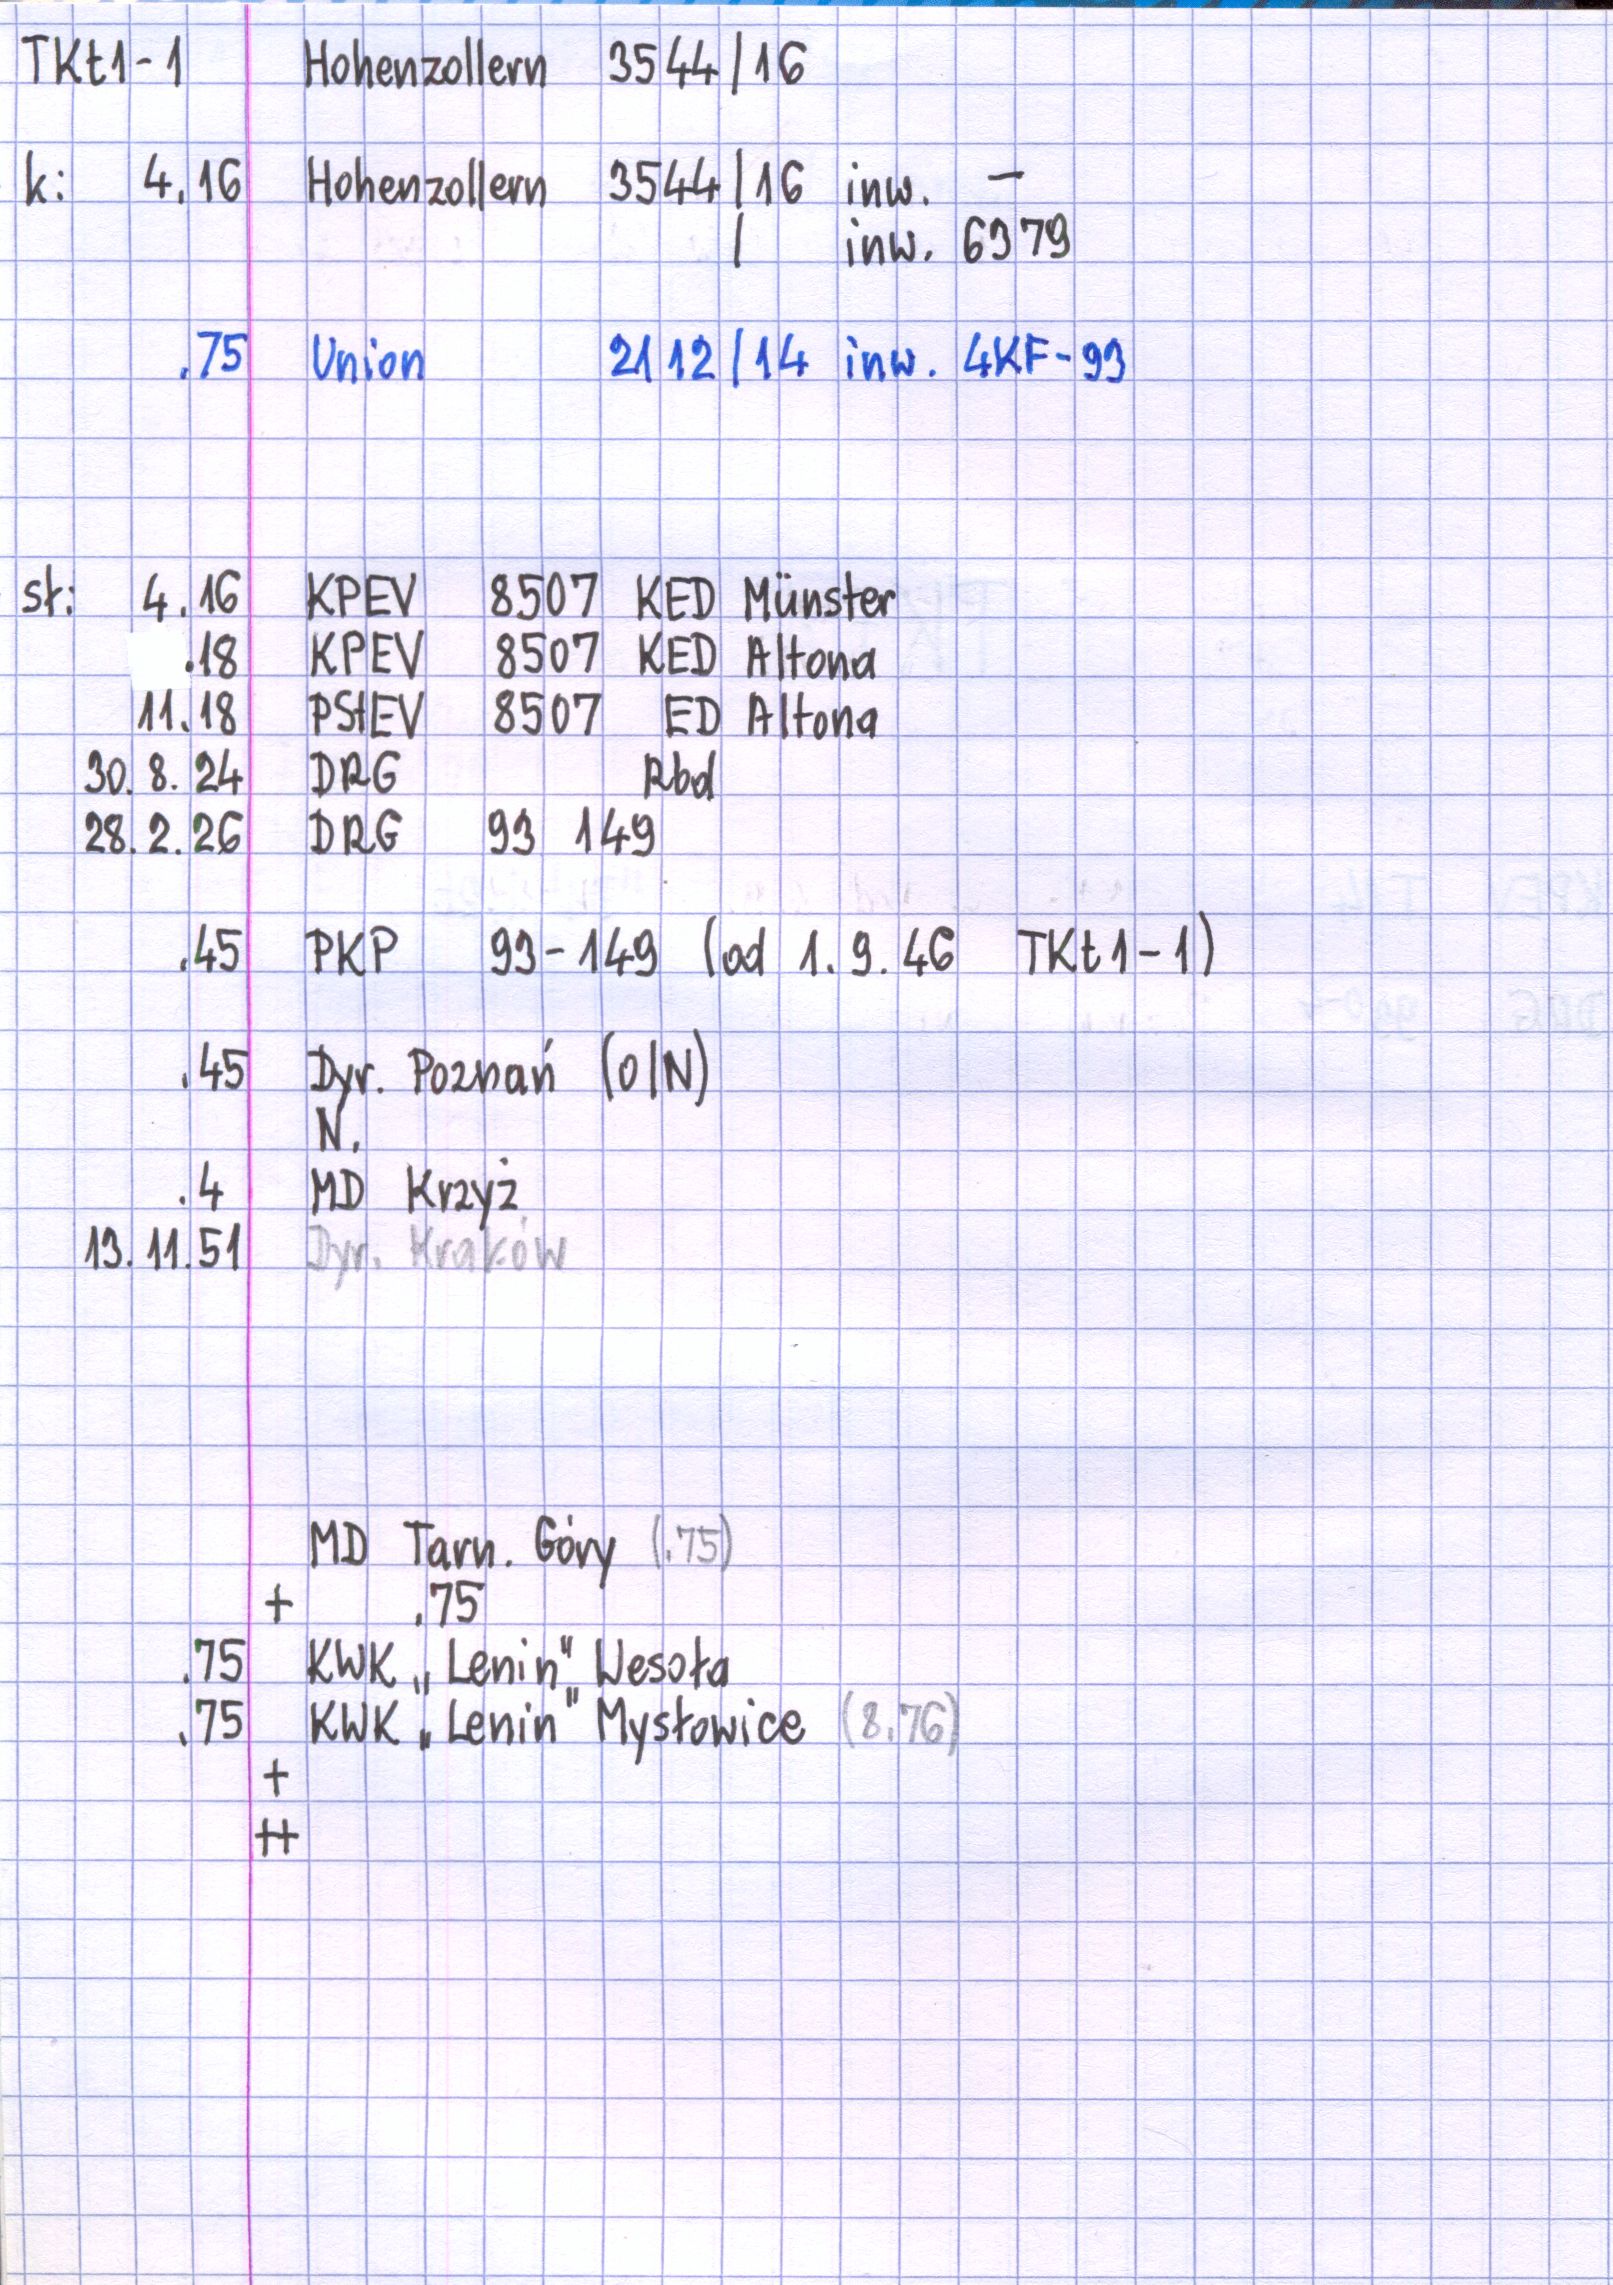 TKt1-1 Hohenzollern 3544/16
k: 4.16 Hohenzollern 3544/16 inw. –
/ inw. 6379
.75 Union 2112/14 inw. 4KF-93
st: 4.16 KPEV 8507 KED Münster
.18 KPEV 8507 KED Altona
11.18 PStEV 8507 ED Altona
30.8.24 DRG Rbd
28.2.26 DRG 93 149
.45 PKP 93-149 (od 1.9.46 TKt1-1)
.45 Dyr. Poznań (O/N)
N.
.4 MD Krzyż
13.11.51 Dyr. Kraków
MD Tarn. Góry (.75)
+ .75
.75 KWK „Lenin" Wesoła
.75 KWK „Lenin" Mysłowice (8.76)
+
++